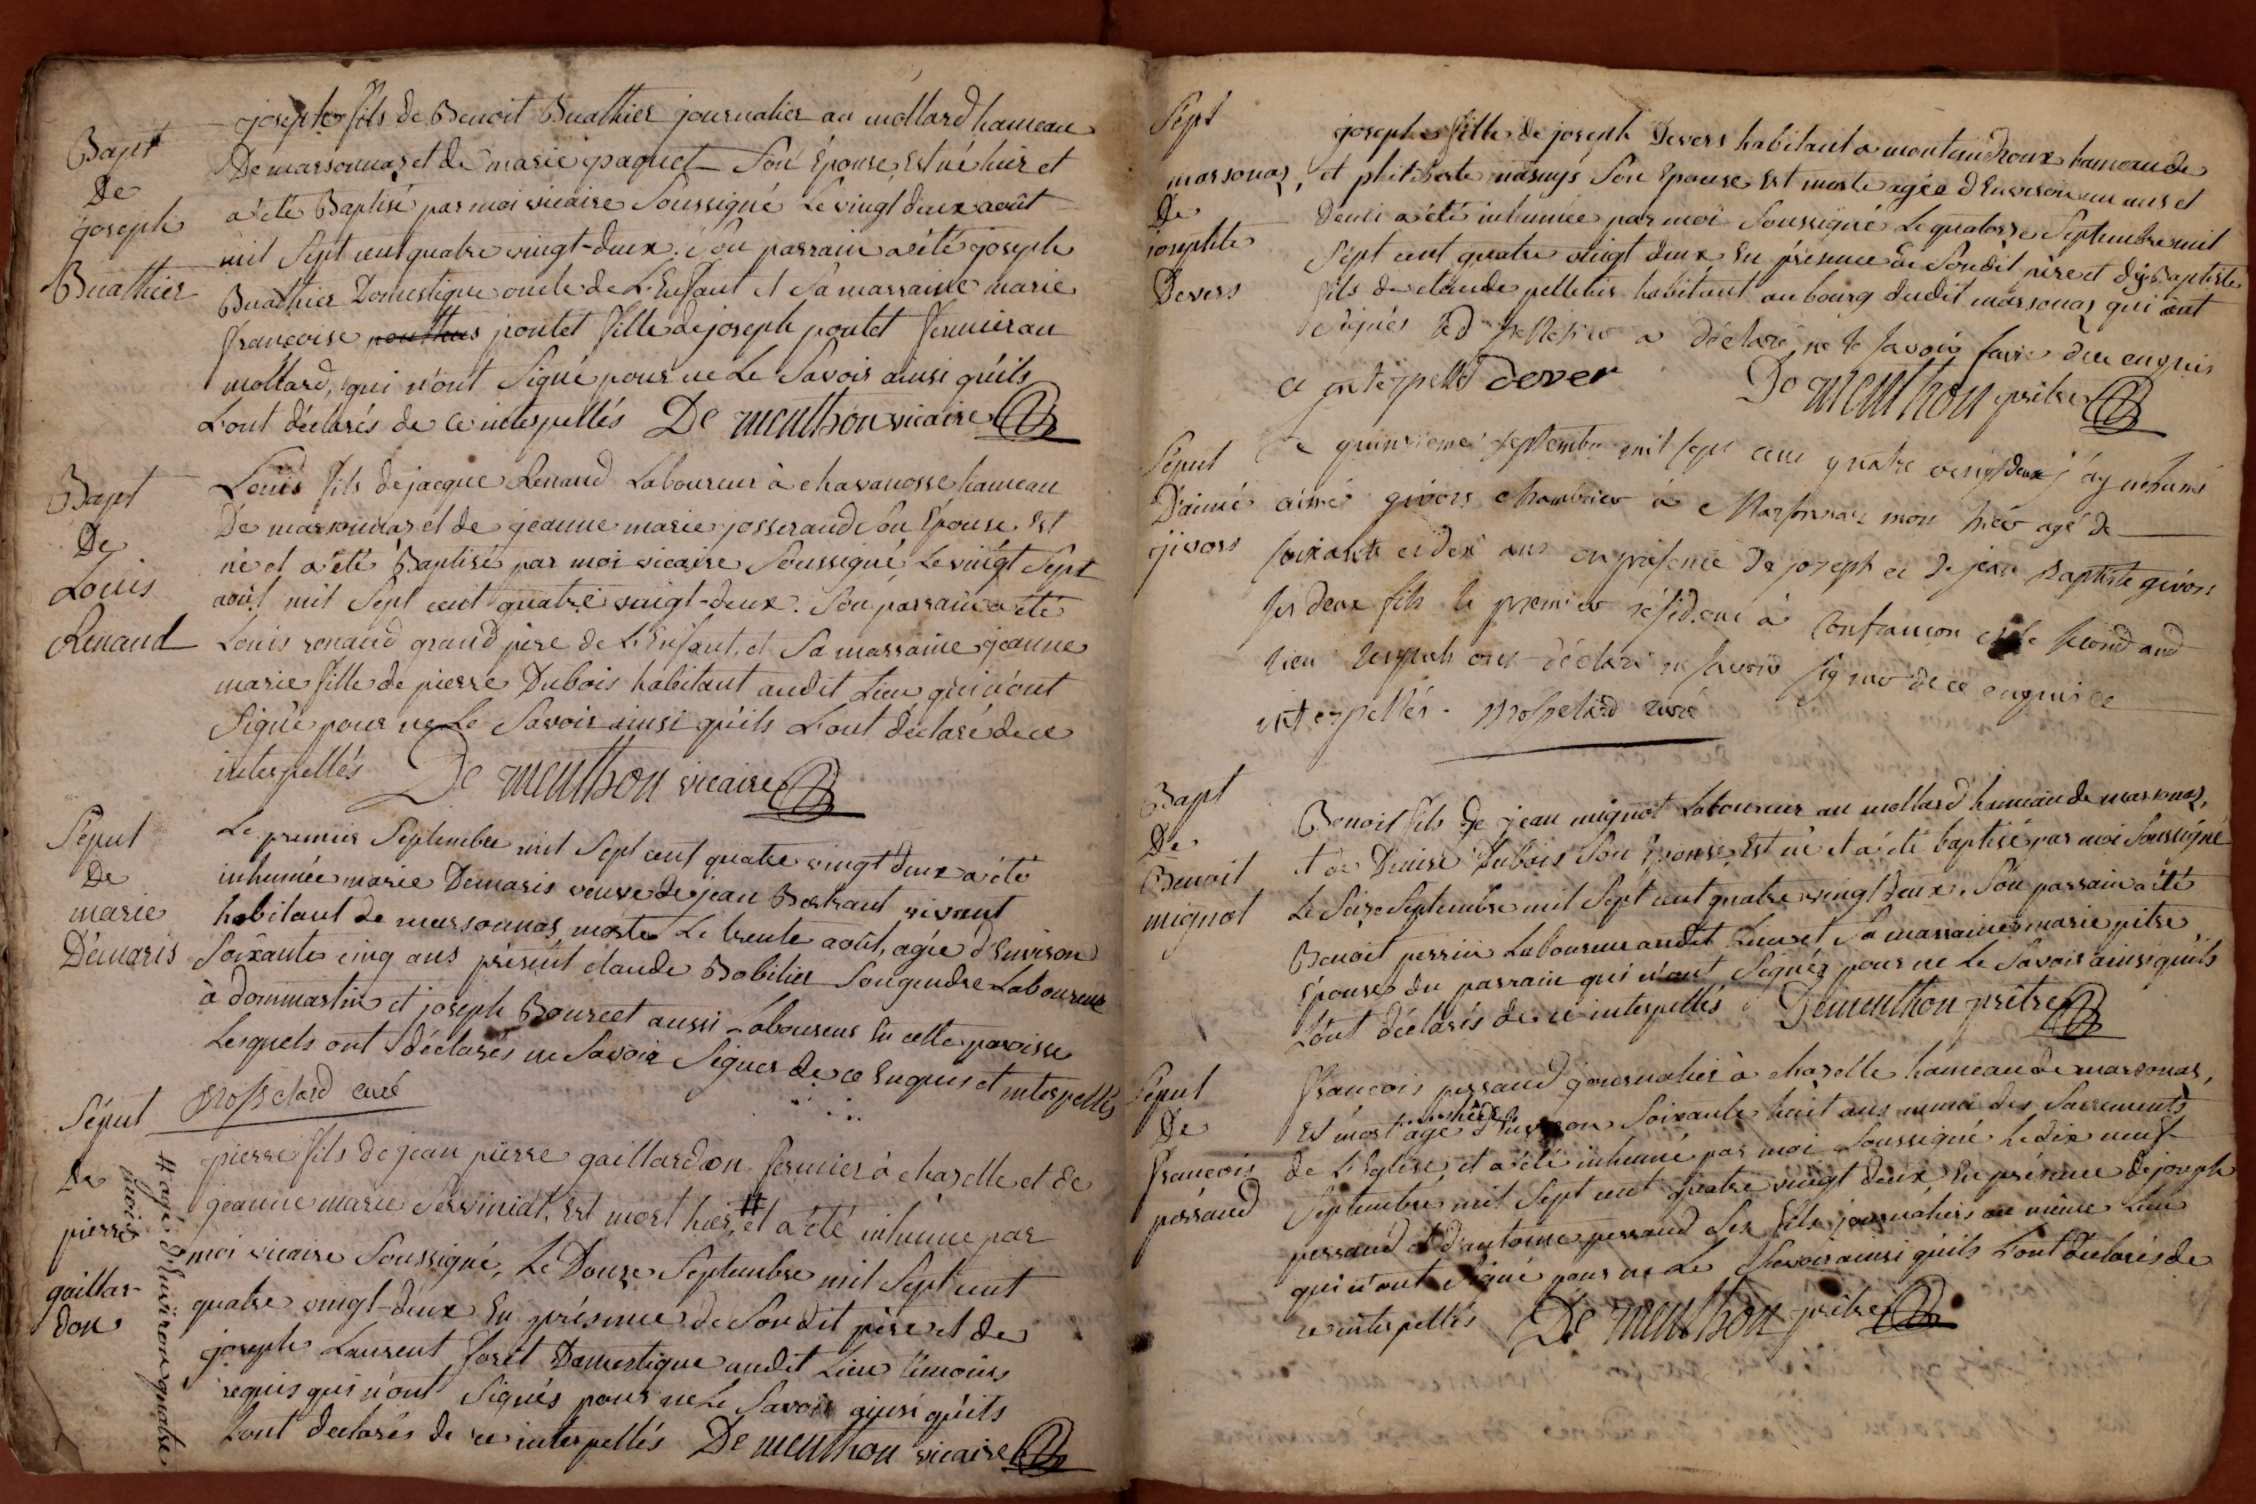 Bapt
De
joseph
Buathier
joseph fils de Benoit Buathier journalier au mollard hameau
De marsonnas et de marie paquet Son Epouse Est né hier et
a été Baptisé par moi vicaire Soussigné Le vingt deux août
mil Sept cent quatre vingt-deux. Son parrain a été joseph
Buathier Domestique oncle de L'Enfant et Sa marraine marie
françoise poutet fille de joseph poutet fermier au
mollard, qui n'ont Signé pour ne Le Savoir ainsi qu'ils
L'ont déclarés de ce interpellés De menthon vicaire
Bapt
De
Louis
Renaud
Louis fils de jacque Renaud Laboureur à chavanosse hameau
De marsonnas et de jeanne marie josserand Son Epouse Est
né et a été Baptisé par moi vicaire Soussigné Le vingt Sept
août mil Sept cent quatre vingt-deux. Son parrain a été
Louis renaud grand père de L'Enfant, et Sa marraine jeanne
marie fille de pierre Dubois habitant audit Lieu qui n'ont
Signé pour ne Le Savoir ainsi qu'ils L'ont déclaré de ce
interpellés De menthon vicaire
Sépul
De
marie
Démaris
Le premier Septembre mil Sept cent quatre vingt deux a été
inhumée marie Demaris veuve de jean Bertrant vivant
habitant de marsonnas morte Le trente août, agée d'Environ
Soixante cinq ans présent claude Bobilier Son gendre Laboureur
à dommartin et joseph Bourcet aussi Laboureur En cette paroisse
Lesquels ont déclarés ne Savoir Signer de ce Enquis et interpellés
curé
Sépul
De
pierre
gaillar-
don
pierre fils de jean pierre gaillardon fermier à charelle et de
jeanne marie Serviniat, Est mort hier, # et a été inhumé par
moi vicaire Soussigné, Le Douze Septembre mil Sept cent
quatre vingt-deux En présence de Sondit père et de
joseph Laurent foret Domestique audit Lieu témoins
requis qui n'ont Signés pour ne Le Savoir ainsi qu'ils
L'ont declarés de ce interpellés De menthon vicaire
# agé d'Environ quatre
mois
Sépt
marsonas,
De
josephte
Devers
josephte fille de joseph Devers habitant a hameau de
et philiberte Son Epouse Est morte agée d'Environ un ans et
Demi a été inhumée par moi Soussigné Le quatorze Septembre mil
Sept cent quatre vingt deux En présence de Sondit père et de jean Baptiste
fils de claude pelletier habitant au bourg dudit marsonas qui ont
Signés led pelletier a déclaré ne le savoir faire de ce enquis
et interpellé dever De menthon prêtre
Sépul
D'aimé
givors
Le quinzieme septembre mil sept cent quatre vingt deux j'ay inhumé
aimé givors à Marsonnas mort hier agé de
soixante et dix ans en présence de joseph et de jean Baptiste givors
ses deux fils le premier résident à Confrançon et le second aud
lieu lesquels ont déclaré ne savoir signer de ce enquis et
interpellés. curé
Bapt
De
Benoit
mignot
Benoit fils De jean mignot Laboureur au mollard hameau de marsonas,
et de Denise Dubois Son Epouse, Est né et a été baptisé par moi Soussigné
Le Seize Septembre mil Sept cent quatre vingt deux. Son parrain a été
Benoit perrin Laboureur audit Lieu et Sa marraine marie pitre
Epouse du parrain qui n'ont Signés pour ne Le Savoir ainsi qu'ils
L'ont déclarés de ce interpellés Dementhon prêtre
Sépul
De
françois
perraud
françois perraud journalier à charelle hameau de marsonas,
Est mort hier agé d'Environ Soixante huit ans muni des Sacrements
de L'Eglise, et a été inhumé par moi Soussigné Le dix neuf
Septembre mil Sept cent quatre vingt deux En présence de joseph
perraud et d'antoine perraud Ses fils journaliers au même Lieu
qui n'ont Signé pour ne Le Savoir ainsi qu'ils L'ont déclarés de
ce interpellés De menthon prêtre